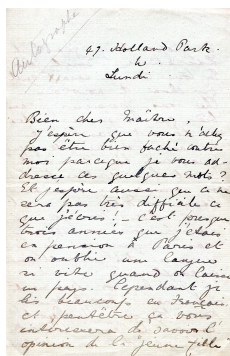 Autographe
47. Holland Park.
W.
Lundi.
Bien cher Maître,
J'espère que vous n'êtes
pas être bien fâché contre
moi parceque je vous ad-
dresse ces quelques mots?
Et j'espère aussi que ce ne
sera pas très difficile ce
que j'écris! C'est presque
trois années que j'étais
en pension à Paris et
on oublie une langue
si vite quand on laisse
un pays. Cependant je
lis beaucoup en Français
et peutêtre ça vous
intéressera de savoir l'
opinion de la "jeune fille"